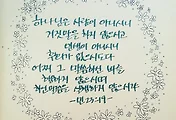 하나님은 사람이 아니시니
거짓말을 하지 않으시고
인생이 아니시니
후회가 없으시도다
어찌 그 말씀하신 바를
행하지 않으시며
하신 말씀을 실행하지 않으시랴
- 민 23:19 -